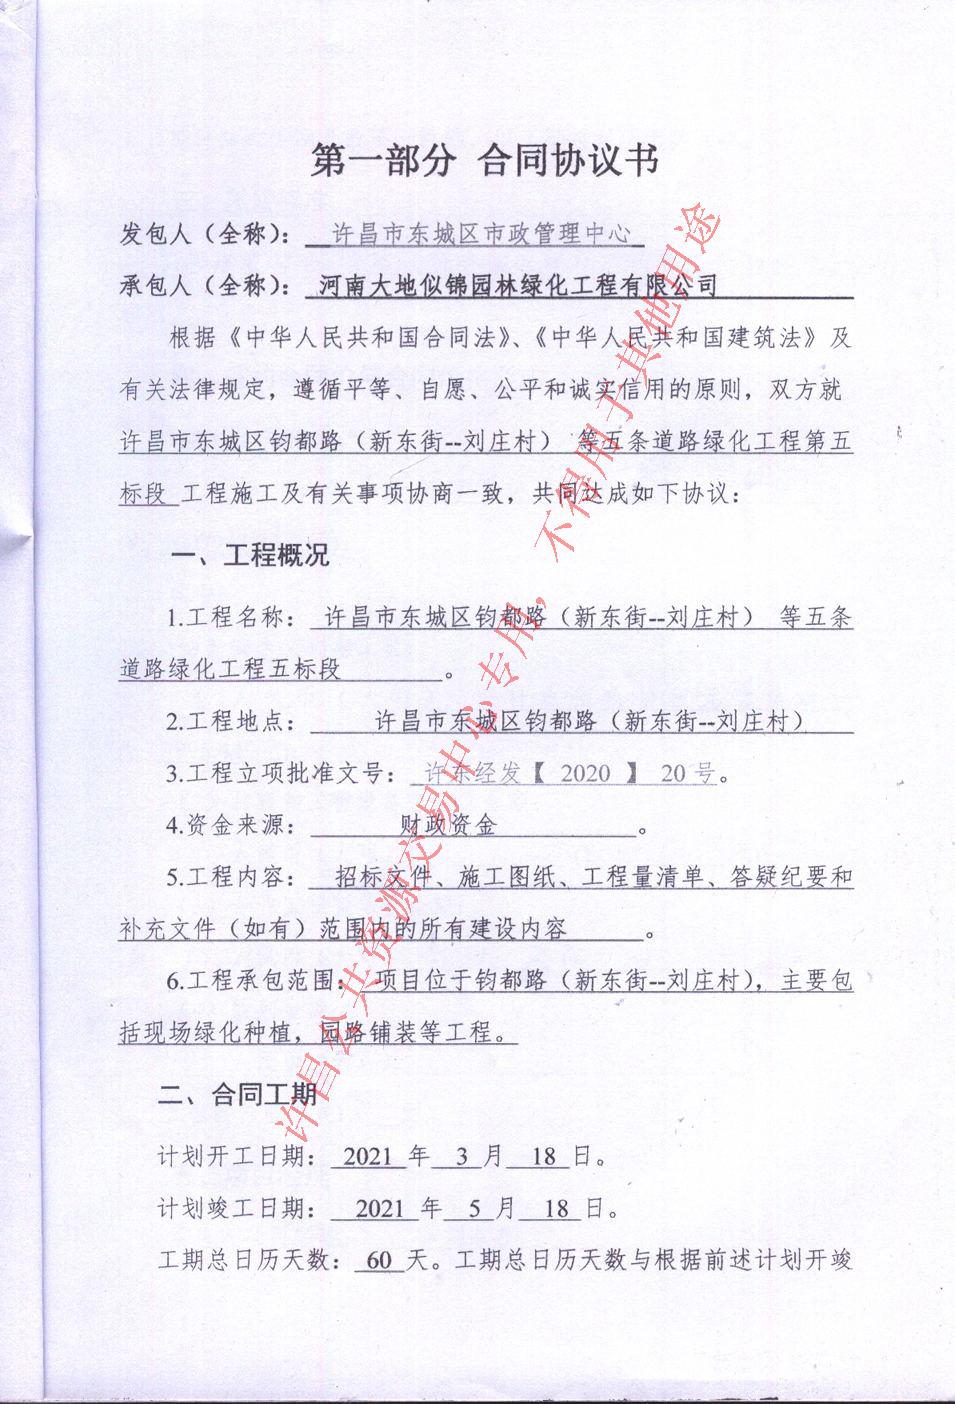 第一部分 合同协议书
发包人（全称）： 许昌市东城区市政管理中心
承包人（全称）： 河南大地似锦园林绿化工程有限公司
根据《中华人民共和国合同法》、《中华人民共和国建筑法》及
有关法律规定，遵循平等、自愿、公平和诚实信用的原则，双方就
许昌市东城区钧都路（新东街--刘庄村） 等五条道路绿化工程第五
标段 工程施工及有关事项协商一致，共同达成如下协议：
一、工程概况
1.工程名称： 许昌市东城区钧都路（新东街--刘庄村） 等五条
道路绿化工程五标段 。
2.工程地点： 许昌市东城区钧都路（新东街--刘庄村）
3.工程立项批准文号： 许东经发【 2020 】 20号。
4.资金来源： 财政资金 。
5.工程内容： 招标文件、施工图纸、工程量清单、答疑纪要和
补充文件（如有）范围内的所有建设内容 。
6.工程承包范围： 项目位于钧都路（新东街--刘庄村），主要包
括现场绿化种植，园路铺装等工程。
二、合同工期
计划开工日期： 2021 年 3 月 18 日。
计划竣工日期： 2021 年 5 月 18 日。
工期总日历天数： 60 天。工期总日历天数与根据前述计划开竣
许昌公共资源交易中心专用，不得用于其他用途